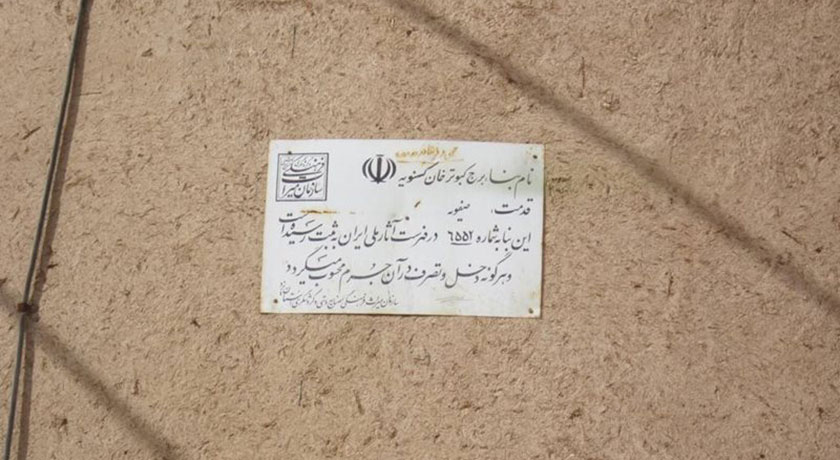 سازمان میراث فرهنگی
نام بنا: برج کبوترخان کسنویه
قدمت: صفویه
این بنا به شماره ۶۵۵۲ در فهرست آثار ملی ایران به ثبت رسیده است
و هرگونه دخل و تصرف در آن جرم محسوب میگردد
سازمان میراث فرهنگی صنایع دستی و گردشگری استان